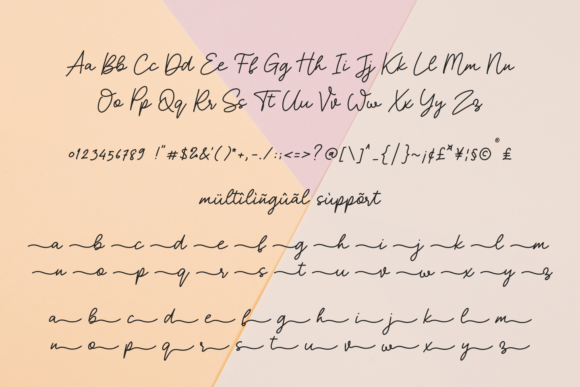 Aa Bb Cc Dd Ee Ff Gg Hh Ii Jj Kk Ll Mm Nn
Oo Pp Qq Rr Ss Tt Uu Vv Ww Xx Yy Zz
0123456789 !"#$%&'()*+,-./:;<=>?@[\]^_{|}~¡¢£¤¥¦§©®£
mültîlìñgûãl sùppõrt
a b c d e f g h i j k l m
n o p q r s t u v w x y z
a b c d e f g h i j k l m
n o p q r s t u v w x y z